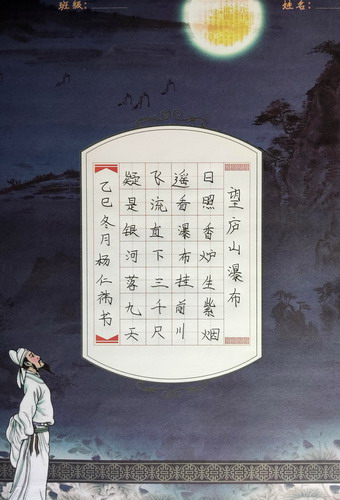 班级:
姓名:
望庐山瀑布
日照香炉生紫烟
遥看瀑布挂前川
飞流直下三千尺
疑是银河落九天
乙巳冬月杨仁书